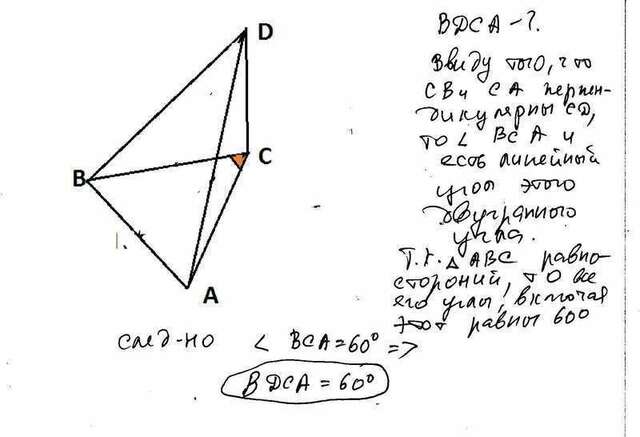 D
C
B
A
BDCA - ?.
Ввиду того, что
CB и CA перпен-
дикулярны CD,
то < BCA и
есть линейный
угол этого
двугранного
угла.
Т.к. △ ABC равно-
стороний, то все
его углы, включая
этот равны 60°
след-но < BCA = 60° =>
BDCA = 60°